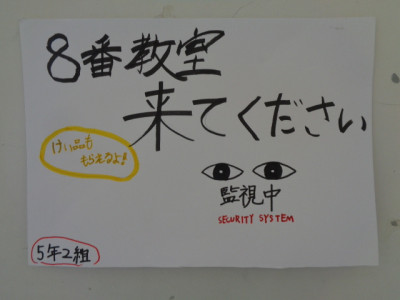 8番教室
来てください
けい品も
もらえるよ!
監視中
SECURITY SYSTEM
5年2組